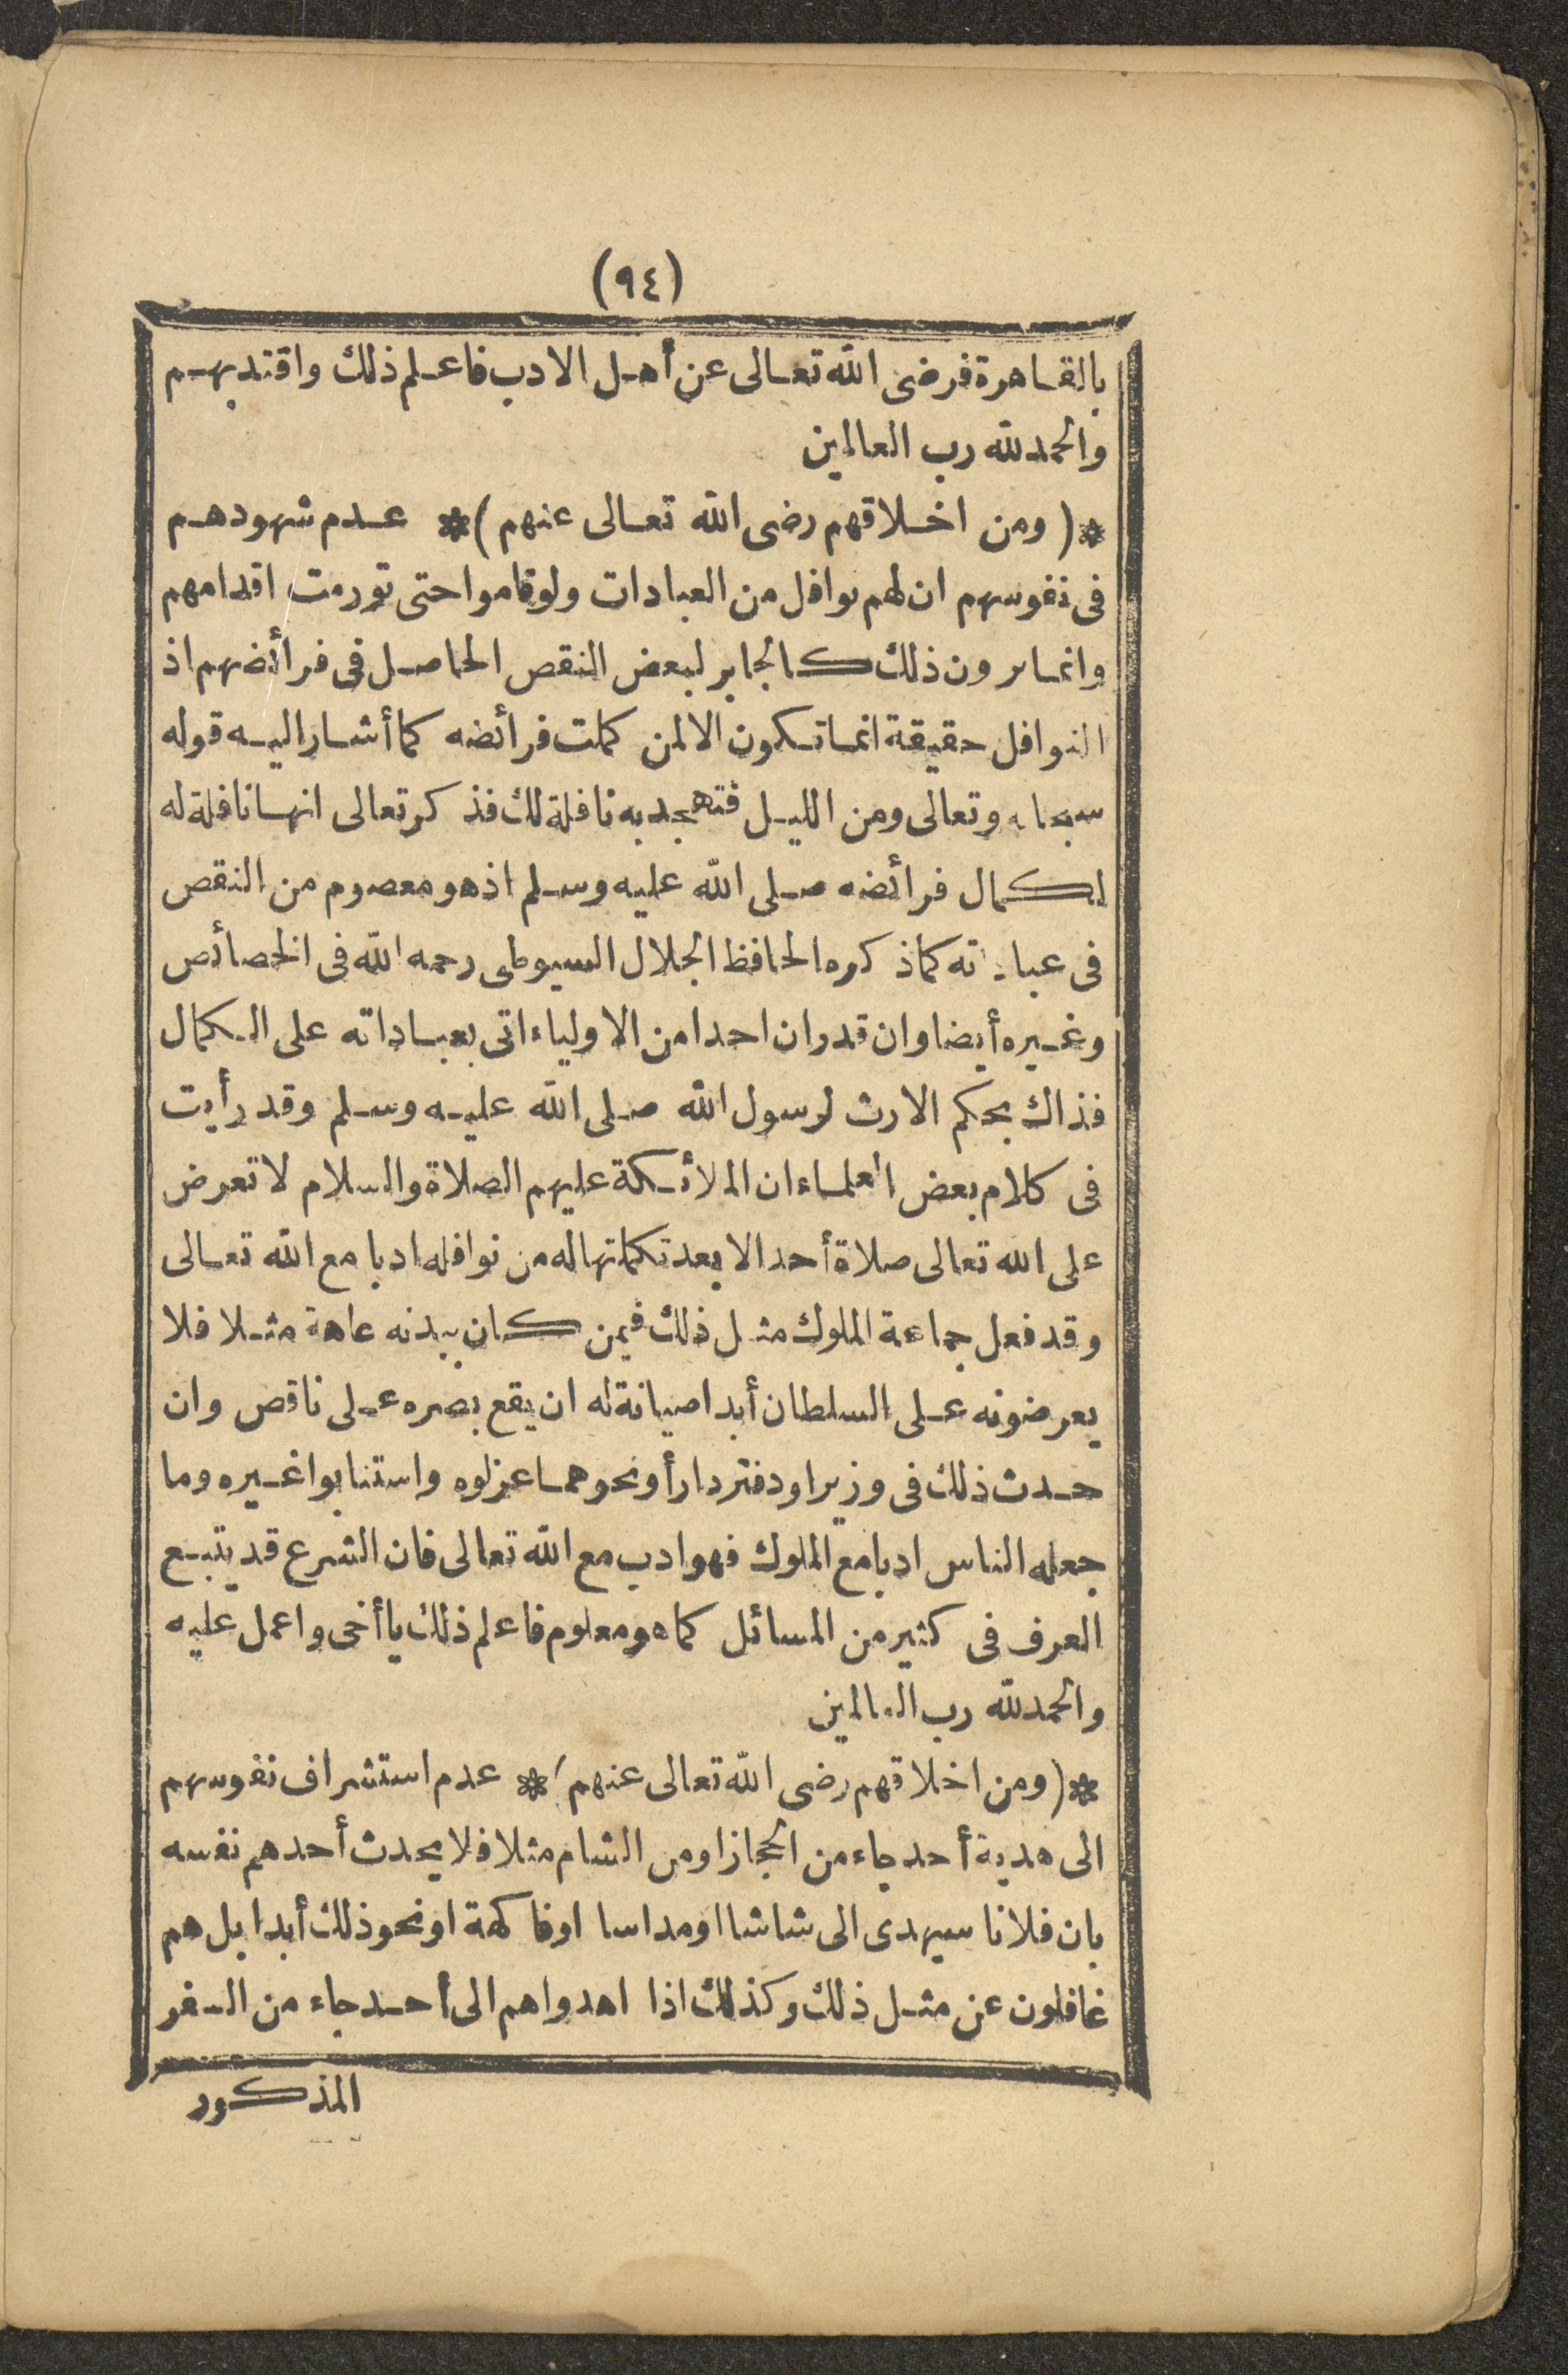 (٩٤)
بالقاهرة فرضى الله تعالى عن أهل الادب فاعلم ذلك واقتد بهم
والحمد لله رب العالمين
*(ومن اخلاقهم رضى الله تعالى عنهم)* عدم شهودهم
فى نفوسهم ان لهم نوافل من العبادات ولو قاموا حتى تورمت اقدامهم
وانما يرون ذلك كالجابر لبعض النقص الحاصل فى فرائضهم اذ
النوافل حقيقة انما تكون الا لمن كملت فرائضه كما أشار اليه قوله
سبحانه وتعالى ومن الليل فتهجد به نافلة لك فذكر تعالى انها نافلة له
لكمال فرائضه صلى الله عليه وسلم اذ هو معصوم من النقص
فى عباداته كما ذكره الحافظ الجلال السيوطى رحمه الله فى الخصائص
وغيره أيضا وان قدر ان احدا من الاولياء اتى بعباداته على الكمال
فذاك بحكم الارث لرسول الله صلى الله عليه وسلم وقد رأيت
فى كلام بعض العلماء ان الملائكة عليهم الصلاة والسلام لا تعرض
على الله تعالى صلاة أحد الا بعد تكملتها له من نوافله ادبا مع الله تعالى
وقد فعل جماعة الملوك مثل ذلك فيمن كان ببدنه عاهة مثلا فلا
يعرضونه على السلطان أبدا صيانة له ان يقع بصره على ناقص وان
حدث ذلك فى وزير او دفتردار أو نحوهما عزلوه واستنابوا غيره وما
جعله الناس ادبا مع الملوك فهو ادب مع الله تعالى فان الشرع قد يتبع
العرف فى كثير من المسائل كما هو معلوم فاعلم ذلك يا أخى واعمل عليه
والحمد لله رب العالمين
*(ومن اخلاقهم رضى الله تعالى عنهم)* عدم استشراف نفوسهم
الى هدية أحد جاء من الحجاز او من الشام مثلا فلا يحدث أحدهم نفسه
بان فلانا سيهدى الى شاشا او مداسا او فاكهة او نحو ذلك أبدا بل هم
غافلون عن مثل ذلك وكذلك اذا اهدوا هم الى أحد جاء من السفر
المذكور